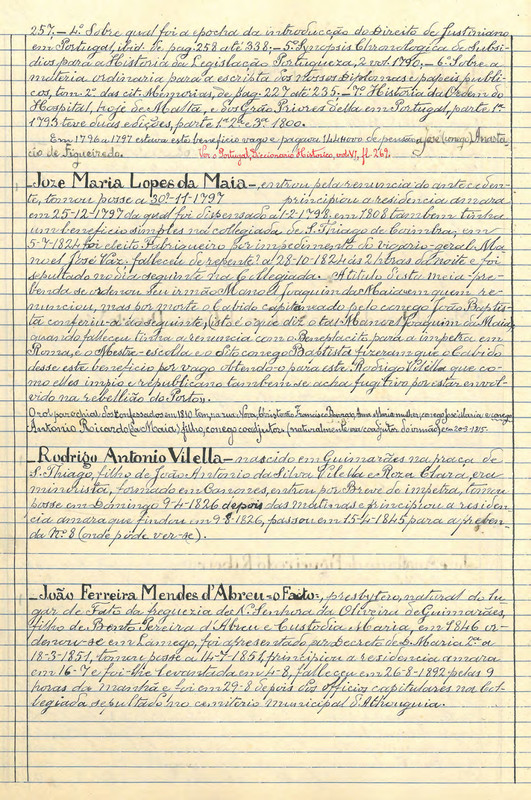 257, – 4º Sobre qual foi a epocha da introducção do Direito de Justiniano
em Portugal, ibid. de pag. 258 até 338; – 5º Synopsis Chronologica de Subsi-
dios para a Historia da Legislação Portugueza, 2 vol. 1790, – 6º Sobre a
materia ordinaria para a escripta dos nossos diplomas e papeis publi-
cos, tom. 2º das cit. Memorias, de pag. 227 até 235. – 7º Historia da Ordem do
Hospital, hoje de Malta, e dos Grão Priores della em Portugal, parte 1ª
1793 teve duas edições, parte 1ª 2ª e 3ª 1800.
Em 1796 a 1797 estava este beneficio vago e pagava de pensão a José (conego) Anasta-
cio de Figueiredo. Ver o Portugal, Diccionario Historico, vol.
Joze Maria Lopes da Maia – entrou pela renuncia do anteceden-
te, tomou posse a 30-11-1797 principiou a residencia amara
em 25-12-1797 da qual foi dispensado a 1-2-1798, em 1808 tambem tinha
um beneficio simples na collegiada de S. Thiago de Coimbra, em
5-7-1824 foi eleito Fabriqueiro por impedimento do vigario-geral Ma-
noel José Vaz. falleceu de repente a 28-10-1824 ás 2 horas da noite e foi
sepultado no dia seguinte na Collegiada. A titulo d'esta meia-pre-
benda se ordenou seu irmão Manoel Joaquim da Maia em quem re-
nunciou, mas por morte o Cabido capitaneado pelo conego João Baptis-
ta conferiu-a ao seguinte, isto é o que diz o tal Manoel Joaquim da Maia,
quando falleceu tinha a renuncia com o Beneplacito para a impetra em
Roma, e o Mestre-escolla e o dito conego Baptista fizeram que o Cabido
desse este beneficio por vago obtendo-o para este Rodrigo Vilella que co-
mo elles impio e republicano tambem se acha fugitivo por estar envol-
vido na rebellião do Porto.
O rol parochial dos confessados em 1810 tem, na rua Nova, Christovão Francisco Anna Maria mulher, conego José Maria e conego
António Ricardo (Lx. Maia) filho, conego coadjutor (naturalmente era coadjutor do irmão) em 20-3-1815.
Rodrigo Antonio Vilella – nascido em Guimarães na praça de
S. Thiago, filho de João Antonio da Silva Vilella e Roza Clara, era
minorista, formado em Canones, entrou por Breve de impetra, tomou
posse em Domingo 9-4-1826 depois das matinas e principiou a residen-
cia amara que findou em 9-8-1826, passou em 15-4-1845 para a preben-
da Nº 8 (onde póde ver-se).
João Ferreira Mendes d'Abreu – o Fato –, presbytero, natural do lu-
gar de Fato da freguezia de N. Senhora da Oliveira de Guimarães,
filho de Bento Pereira d'Abreu e Custodia Maria, em 1846 or-
denou-se em Lamego, foi apresentado por Decreto de D. Maria 2ª a
18-3-1851, tomou posse a 14-7-1851, principiou a residencia amara
em 16-7 e foi-lhe levantada em 4-8, falleceu em 26-8-1892 pelas 9
horas da manhã e foi em 29-8 depois dos officios capitulares na Col-
legiada sepultado no cemiterio municipal d'Athouguia.